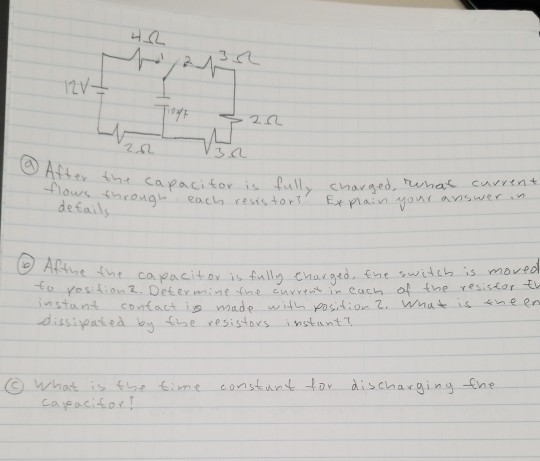 4Ω
1 2 3Ω
12V
10μf
2Ω
2Ω
3Ω
ⓐ After the capacitor is fully charged, what current
flows through each resistor? Explain your answer in
details
ⓑ After the capacitor is fully charged, the switch is moved
to position 2. Determine the current in each of the resistor th
instant contact is made with position 2. What is the en
dissipated by the resistors instant?
ⓒ What is the time constant for discharging the
capacitor?